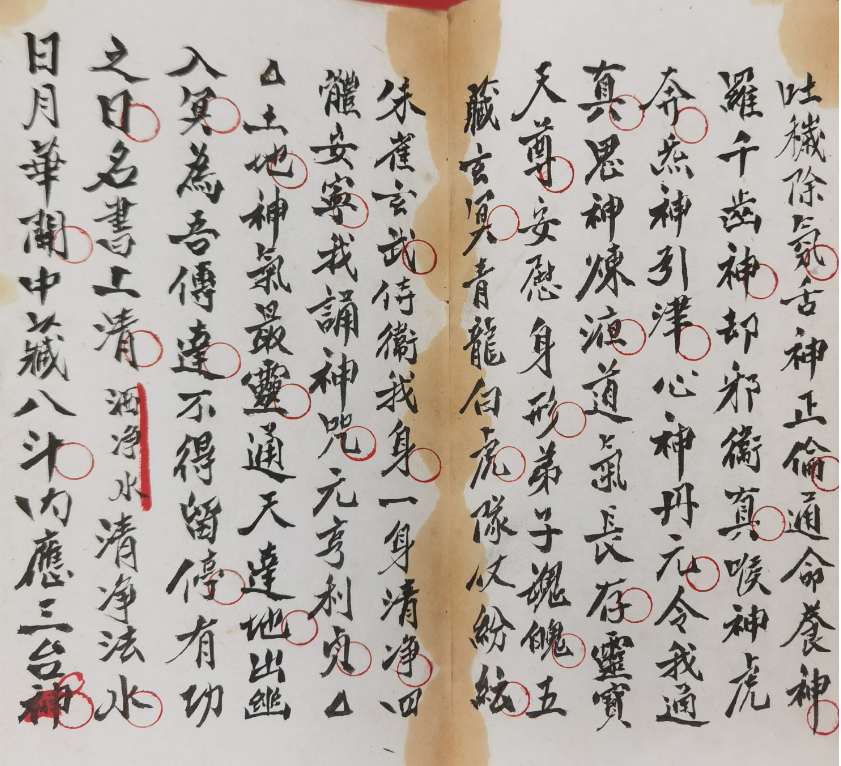 吐穢除氛舌神正倫通命養神
羅千齒神却邪衞真喉神虎
奔炁神引津心神丹元令我通
真思神煉液道氣長存靈寶
天尊安慰身形弟子魂魄五
藏玄冥青龍白虎隊仗紛紜
朱雀玄武侍衞我身一身清净四
體安寧我誦神咒元亨利貞△
△土地神氣最靈通天達地出幽
入冥為吾傳達不得留停有功
之日名書上清洒净水清净法水
日月華開中藏八斗内應三台神